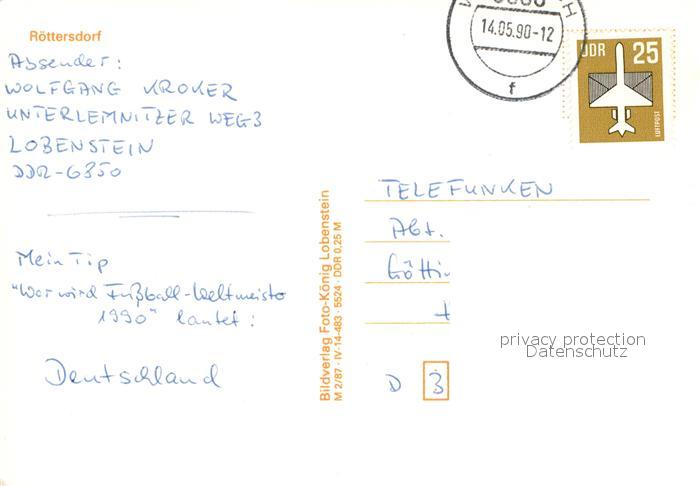 Röttersdorf
Absender:
WOLFGANG KROKER
UNTERLEMNITZER WEG 3
LOBENSTEIN
DDR-6850
Mein Tip
"Wer wird Fußball-Weltmeister
1990" lautet:
Deutschland
Bildverlag Foto-König Lobenstein
M 2/87 · IV-14-483 · 5524 · DDR 0,25 M
14.05.90-12
f
DDR 25
LUFTPOST
TELEFUNKEN
Abt.
D 3
privacy protection
Datenschutz